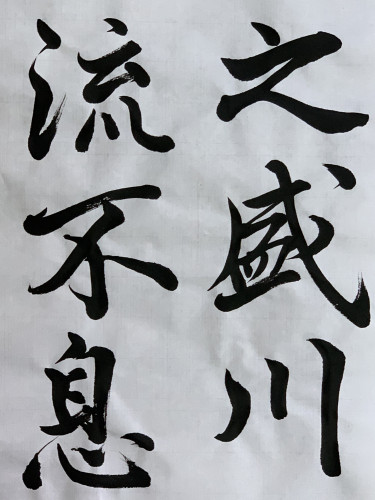 之盛川
流不息